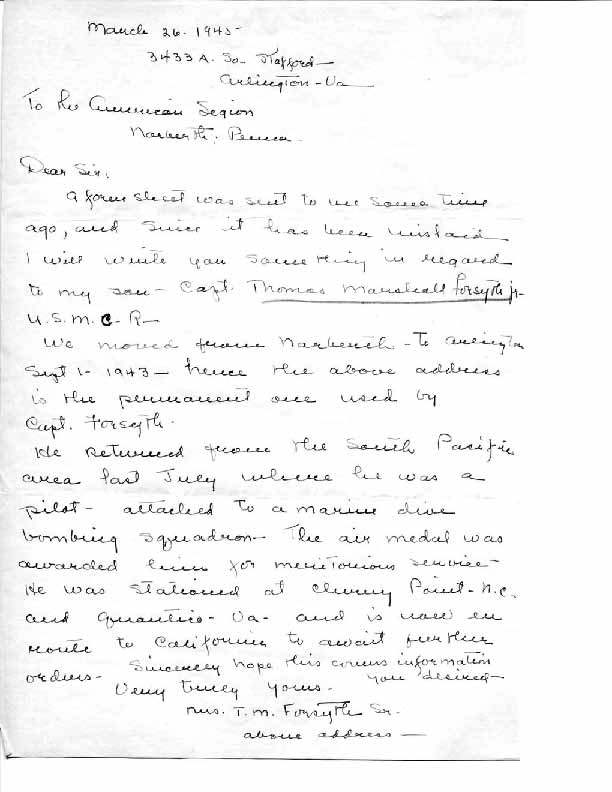 March 26-1945-
3433 A. So. Stafford-
Arlington-Va
To the American Legion
Narberth, Penna.
Dear Sir,
A form sheet was sent to me some time
ago, and since it has been mislaid
I will write you something in regard
to my son- Capt. Thomas Marshall Forsyth jr-
U.S.M.C-R-
We moved from Narberth-to Arlington
Sept 1-1943- hence the above address
is the permanent one used by
Capt. Forsyth.
He returned from the South Pacific
area last July where he was a
pilot- attached to a marine dive
bombing squadron- The air medal was
awarded him for meritorious service-
He was stationed at Cherry Point-N.C.
and Quantico-Va- and is now en
route to California to await further
orders-
Sincerely hope this covers information
you desired-
Very truly yours.
Mrs. T.M. Forsyth Sr.
above address-